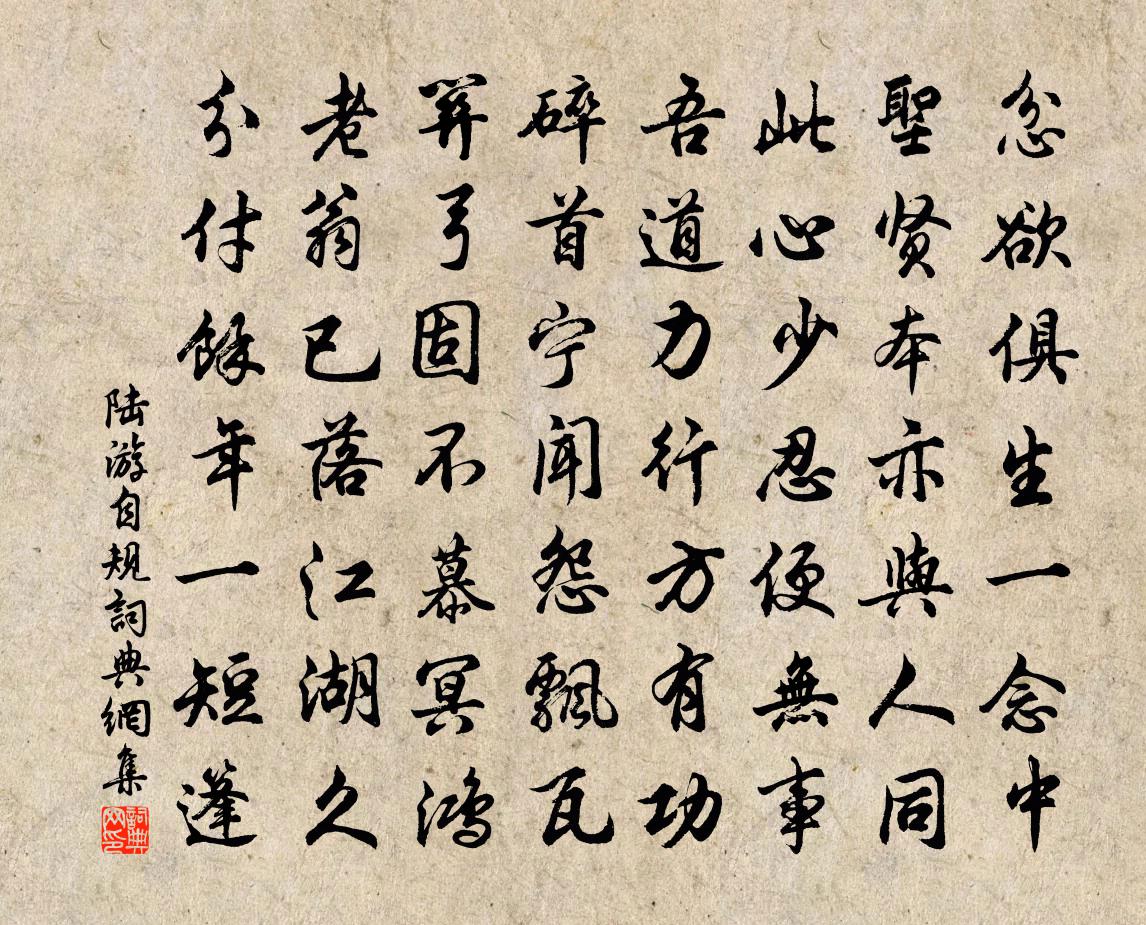 忿欲俱生一念中
聖贤本亦與人同
此心少忍便無事
吾道力行方有功
碎首宁聞怨飄瓦
關弓固不慕冥鸿
老翁已落江湖久
分付餘年一短蓬
陆游自规詞典網集
詞典网印